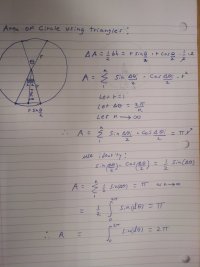 Area of Circle using triangles:
ΔA = 1/2 bh = r sin Δθ/2 · r cos Δθ/2 · 1/2 · 2
r
A = Σ₁ⁿ sin Δθ/2 · cos Δθ/2 · r²
Let r=1
Let Δθ = 2π/n
Let n → ∞
r sin θ/2
∴ A = Σ₁ⁿ sin Δθ/2 · cos Δθ/2 = πr²
use identity:
sin(Δθ/2) · cos(Δθ/2) = 1/2 sin(Δθ)
A = Σ₁ⁿ 1/2 sin(Δθ) = π as n→∞
= 1/2 ∫₀²π sin(dθ) = π
∴ A = ∫₀²π sin(dθ) = 2π